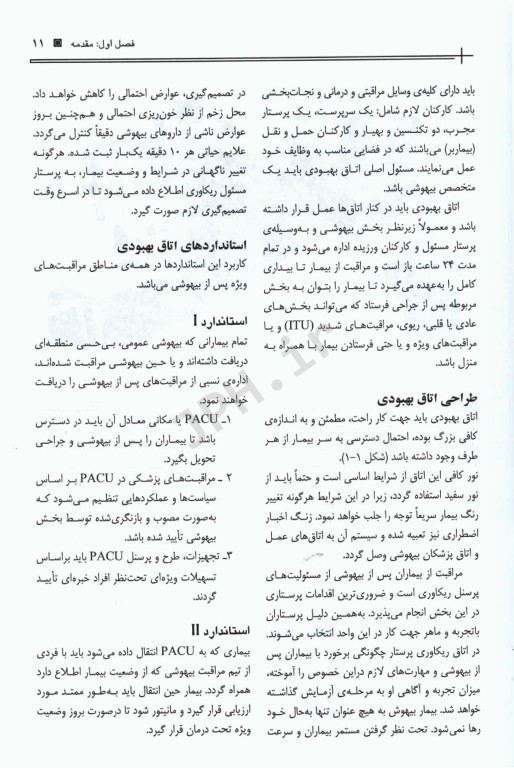 فصل اول: مقدمه ۱۱
باید دارای کلیه‌ی وسایل مراقبتی و درمانی و نجات‌بخشی
باشد. کارکنان لازم شامل: یک سرپرست، یک پرستار
مجرب، دو تکنسین و بهیار و کارکنان حمل و نقل
(بیماربر) می‌باشند که در فضایی مناسب به وظایف خود
عمل می‌نمایند. مسئول اصلی اتاق بهبودی باید یک
متخصص بیهوشی باشد.
اتاق بهبودی باید در کنار اتاق‌ها عمل قرار داشته
باشد و معمولاً زیرنظر بخش بیهوشی و به‌وسیله‌ی
پرستار مسئول و کارکنان ورزیده اداره می‌شود و در تمام
مدت ۲۴ ساعت باز است و مراقبت از بیمار تا بیداری
کامل را به‌عهده می‌گیرد تا بیمار را بتوان به بخش
مربوطه پس از جراحی فرستاد که می‌تواند بخش‌های
عادی یا قلبی، ریوی، مراقبت‌های شدید (ITU) و یا
مراقبت‌های ویژه و یا حتی فرستادن بیمار با همراه به
منزل باشد.
طراحی اتاق بهبودی
اتاق بهبودی باید جهت کار راحت، مطمئن و به اندازه‌ی
کافی بزرگ بوده، احتمال دسترسی به سر بیمار از هر
طرف وجود داشته باشد (شکل ۱-۱).
نور کافی این اتاق از شرایط اساسی است و حتماً باید از
نور سفید استفاده گردد، زیرا در این شرایط هرگونه تغییر
رنگ بیمار سریعاً توجه را جلب خواهد نمود. زنگ اخبار
اضطراری نیز تعبیه شده و سیستم آن به اتاق‌های عمل
و اتاق پزشکان بیهوشی وصل گردد.
مراقبت از بیماران پس از بیهوشی از مسئولیت‌های
پرسنل ریکاوری است و ضروری‌ترین اقدامات پرستاری
در این بخش انجام می‌پذیرد. به‌همین دلیل پرستاران
باتجربه و ماهر جهت کار در این واحد انتخاب می‌شوند.
در اتاق ریکاوری پرستار چگونگی برخورد با بیماران پس
از بیهوشی و مهارت‌های لازم دراین خصوص را آموخته،
میزان تجربه و آگاهی او به مرحله‌ی آزمایش گذاشته
خواهد شد. بیمار بیهوش به هیچ عنوان تنها به‌حال خود
رها نمی‌شود. تحت نظر گرفتن مستمر بیماران و سرعت
در تصمیم‌گیری، عوارض احتمالی را کاهش خواهد داد.
محل زخم از نظر خون‌ریزی احتمالی و هم‌چنین بروز
عوارض ناشی از داروهای بیهوشی دقیقاً کنترل می‌گردد.
علایم حیاتی هر ۱۰ دقیقه یک‌بار ثبت شده. هرگونه
تغییر ناگهانی در شرایط و وضعیت بیمار، به پرستار
مسئول ریکاوری اطلاع داده می‌شود تا در اسرع وقت
تصمیم‌گیری لازم صورت گیرد.
استانداردهای اتاق بهبودی
کاربرد این استانداردها در همه‌ی مناطق مراقبت‌های
ویژه پس از بیهوشی می‌باشد.
استاندارد I
تمام بیمارانی که بیهوشی عمومی، بی‌حسی منطقه‌ای
دریافت داشته‌اند و یا حین بیهوشی مراقبت شده‌اند،
اداره‌ی نسبی از مراقبت‌های پس از بیهوشی را دریافت
خواهند نمود.
۱ـ PACU یا مکانی معادل آن باید در دسترس
باشد تا بیماران را پس از بیهوشی و جراحی
تحویل بگیرد.
۲ ـ مراقبت‌های پزشکی در PACU بر اساس
سیاست‌ها و عملکردهایی تنظیم می‌شود که
به‌صورت مصوب و بازنگری‌شده توسط بخش
بیهوشی تأیید شده باشد.
۳ـ تجهیزات، طرح و پرسنل PACU باید براساس
تسهیلات ویژه‌ای تحت‌نظر افراد خبره‌ای تأیید
گردند.
استاندارد II
بیماری که به PACU انتقال داده می‌شود باید با فردی
از تیم مراقبت بیهوشی که از وضعیت بیمار اطلاع دارد
همراه گردد. بیمار حین انتقال باید به‌طور ممتد مورد
ارزیابی قرار گیرد و مانیتور شود تا درصورت بروز وضعیت
ویژه تحت درمان قرار گیرد.